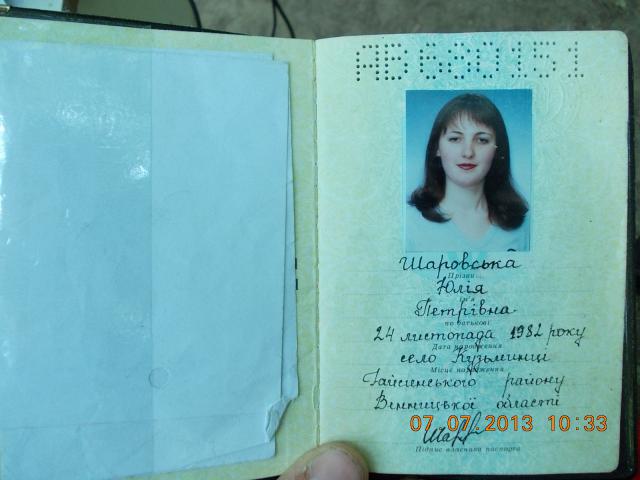 АВ 680151
Шаровська
Прізвище
Юлія
Ім'я
Петрівна
по батькові
24 листопада 1982 року
Дата народження
село Кузьминці
Місце народження
Гайсинського району
Вінницької області
07.07.2013 10:33
Підпис власника паспорта